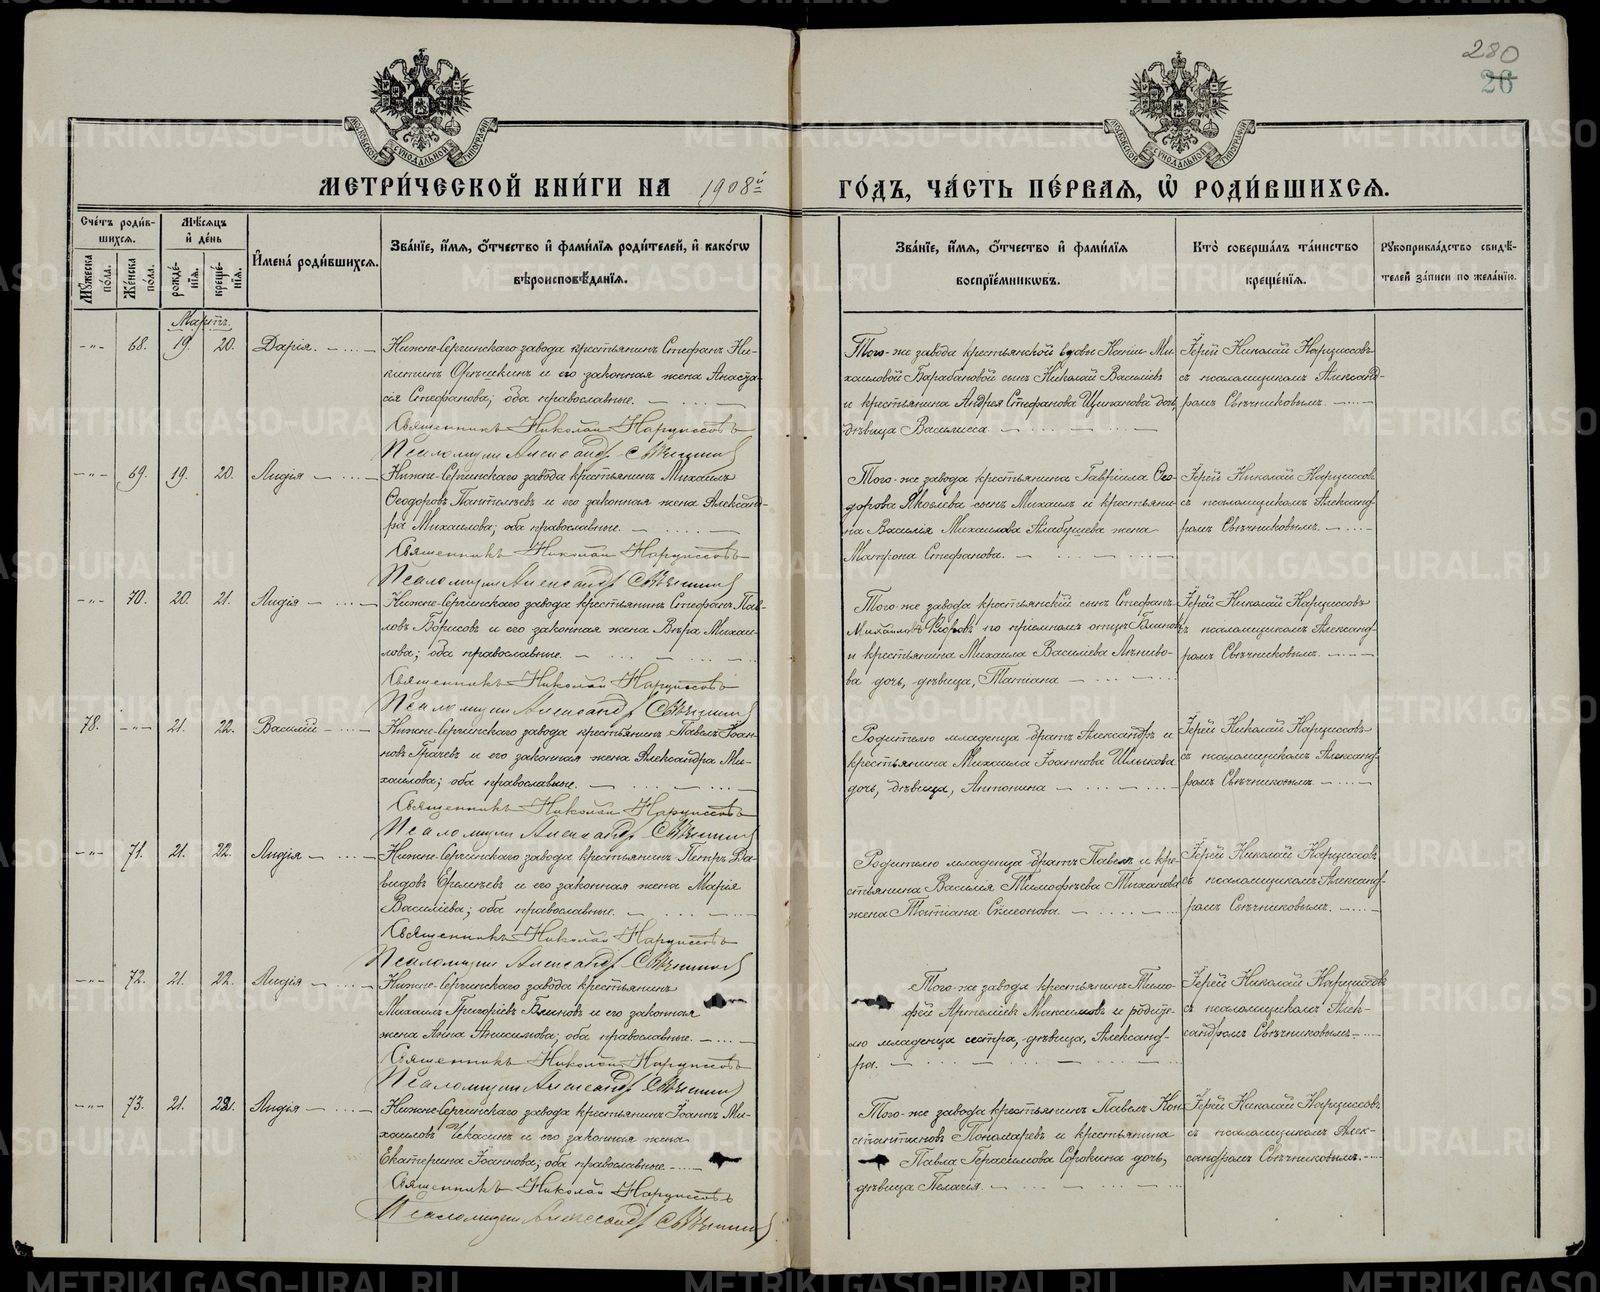 280
26
МЕТРИ́ЧЕСКОЙ КНИ́ГИ НА 1908й
ГО́ДЪ, ЧА́СТЬ ПЕ́РВАЯ, Ѡ҆ РОДИ́ВШИХСЯ.
Сче́тъ роди́в-
шихся.
Мѣ́сяцъ
и҆ де́нь
Имена́ роди́вшихся.
Зва́нїе, и҆́мя, ѻ҆́тчество и҆ фами́лїя роди́телей, и҆ како́гѡ
вѣроисповѣ́данїя.
Му́жеска
по́ла.
Же́нска
по́ла.
рожде́-
нїя.
креще́-
нїя.
Зва́нїе, и҆́мя, ѻ҆́тчество и҆ фами́лїя
воспрїе́мникѡвъ.
Кто̀ соверша́лъ та́инство
креще́нїя.
Рꙋкоприкла́дство свидѣ́-
телей за́писи по жела́нїю.
Мартъ.
-„- 68. 19. 20. Дарія.
Нижне-Сергинскаго завода крестьянинъ Стефанъ Ни-
китинъ и его законная жена Анаста-
сія Стефанова; оба православные.
Священникъ Николай Нарциссовъ
Псаломщикъ Александръ Свѣчниковъ
Того-же завода крестьянской вдовы Ми-
хаиловой Барабановой сынъ Николай Васильевъ
и крестьянина Андрея Стефанова Щипанова дочь,
дѣвица Василисса.
Іерей Николай Нарциссовъ
съ псаломщикомъ Александ-
ромъ Свѣчниковымъ.
-„- 69. 19. 20. Лидія
Нижне-Сергинскаго завода крестьянинъ Михаилъ
Ѳеодоровъ Пантелѣевъ и его законная жена Александ-
ра Михаилова; оба православные.
Священникъ Николай Нарциссовъ
Псаломщикъ Александръ Свѣчниковъ
Того-же завода крестьянина Гавріила Ѳео-
дорова Яковлева сынъ Михаилъ и крестьяни-
на Василія Михаилова Алабушева жена
Матрона Стефанова.
Іерей Николай Нарциссовъ
съ псаломщикомъ Александ-
ромъ Свѣчниковымъ.
-„- 70. 20. 21. Лидія
Нижне-Сергинскаго завода крестьянинъ Стефанъ Пав-
ловъ Борисовъ и его законная жена Вѣра Михаи-
лова; оба православные.
Священникъ Николай Нарциссовъ
Псаломщикъ Александръ Свѣчниковъ
Того-же завода крестьянскій сынъ Стефанъ
Михайловъ по пріемномъ отцѣ Блиновъ
и крестьянина Михаила Василіева
дочь, дѣвица, Татіана
Іерей Николай Нарциссовъ
съ псаломщикомъ Александ-
ромъ Свѣчниковымъ.
78. -„- 21. 22. Василій
Нижне-Сергинскаго завода крестьянинъ Павелъ Іоан-
новъ Грачевъ и его законная жена Александра Ми-
хаилова; оба православные.
Священникъ Николай Нарциссовъ
Псаломщикъ Александръ Свѣчниковъ
Родителю младенца братъ Александръ и
крестьянина Михаила Іоаннова Шлыкова
дочь, дѣвица, Антонина
Іерей Николай Нарциссовъ
съ псаломщикомъ Александ-
ромъ Свѣчниковымъ
-„- 71. 21. 22. Лидія
Нижне-Сергинскаго завода крестьянинъ Петръ Да-
видовъ Еремѣевъ и его законная жена Марія
Василіева; оба православные.
Священникъ Николай Нарциссовъ
Псаломщикъ Александръ Свѣчниковъ
Родителю младенца братъ Павелъ и кре-
стьянина Василія Тимофѣева Тиханова
жена Татіана Сѵмеонова.
Іерей Николай Нарциссовъ
съ псаломщикомъ Александ-
ромъ Свѣчниковымъ.
-„- 72. 21. 22. Лидія
Нижне-Сергинскаго завода крестьянинъ
Михаилъ Григоріевъ Блиновъ и его законная
жена Анна Анисимова; оба православные.
Священникъ Николай Нарциссовъ
Псаломщикъ Александръ Свѣчниковъ
Того-же завода крестьянинъ Тимо-
фей Артеміевъ Максимовъ и родите-
лю младенца сестра, дѣвица, Александ-
ра.
Іерей Николай Нарциссовъ
съ псаломщикомъ Алек-
сандромъ Свѣчниковымъ.
-„- 73. 21. 22. Лидія
Нижне-Сергинскаго завода крестьянинъ Іоаннъ Ми-
хаиловъ Чекасинъ и его законная жена
Екатерина Іоаннова; оба православные.
Священникъ Николай Нарциссовъ
Псаломщикъ Александръ Свѣчниковъ
Того-же завода крестьянинъ Павелъ Кон-
стантиновъ Пономаревъ и крестьянина
Павла Герасимова Сорокина дочь,
дѣвица Пелагія.
Іерей Николай Нарциссовъ
съ псаломщикомъ Алек-
сандромъ Свѣчниковымъ.
METRIKI.GASO-URAL.RU